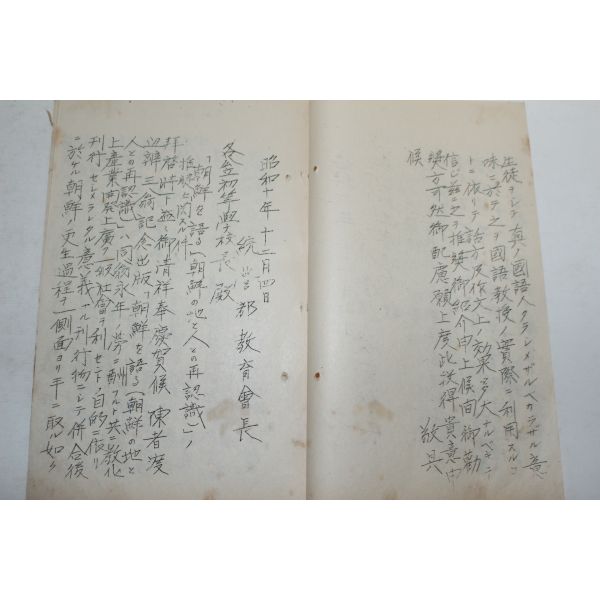 生徒ヲシテ真ノ國語人タラシメザルベカラザル意
味ニ於テ之ヲ國語教授ノ實際ニ利用スルコ
トニ依リテ話方及作文上ノ効果多大ナルベキヲ
信ジ茲ニ之ヲ推奨御紹介申上候間御勸
奨方可然御配慮願上度此段得貴意申
候 敬具
昭和十年十二月四日
統営郡教育會長
各公立初等學校長殿
「朝鮮を語る」(朝鮮の地と人との再認識)ノ
推奨ニ関スル件
拝啓時下益々御清祥奉慶賀候陳者渡
辺辨三翁記念出版「朝鮮を語る」(朝鮮の地と
人との再認識)ハ同翁永年ノ労ニ酬フルト共ニ教化
上産業開発上廣ク一般社會ヲ利セントノ目的ニ依リ
刊行セシメラレタル意義アル刊行物ニシテ併合後
ニ於ケル朝鮮ノ更生過程ヲ一側面ヨリ手ニ取ル如ク